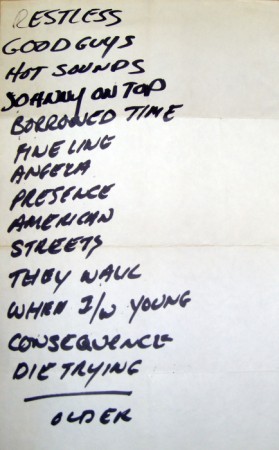 RESTLESS
GOOD GUYS
HOT SOUNDS
JOHNNY ON TOP
BORROWED TIME
FINE LINE
ANGELA
PRESENCE
AMERICAN
STREETS
THEY WALK
WHEN I/W YOUNG
CONSEQUENCE
DIE TRYING
OLDER